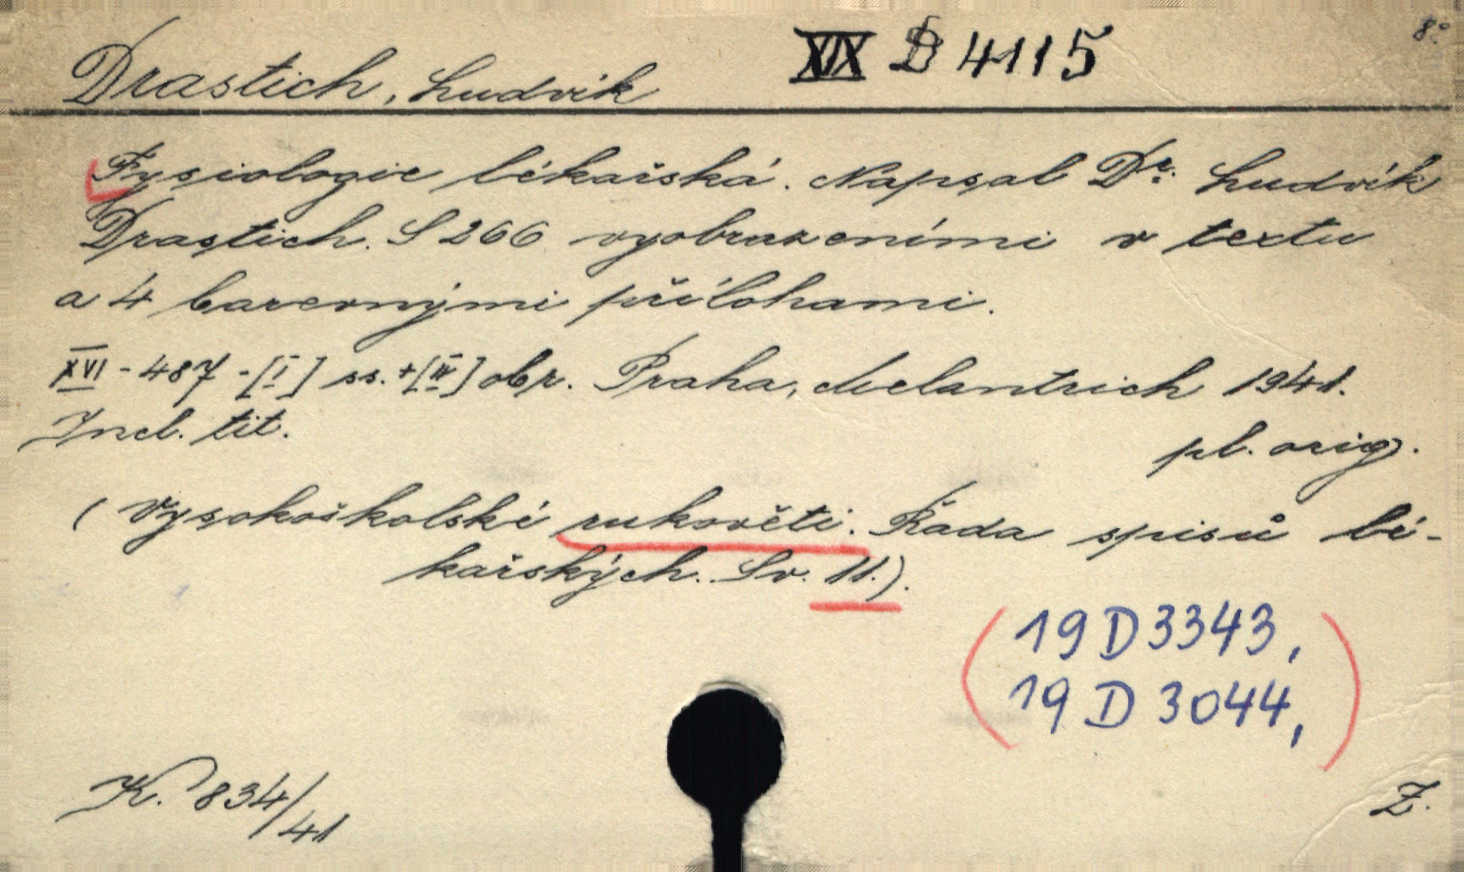 8°
XIX B 4115
Drastich, Ludvík
Fysiologie lékařská. Napsal Dr. Ludvík
Drastich. S 266 vyobrazeními v textu
a 4 barevnými přílohami.
XVI - 487 - [I] ss. + [IV] obr. Praha, Melantrich 1941.
Incl. tit.
pl. orig.
(Vysokoškolské rukověti. Řada spisů lé-
kařských. Sv. 11.).
(19 D 3343,
19 D 3044,)
K. 834/41
Z.